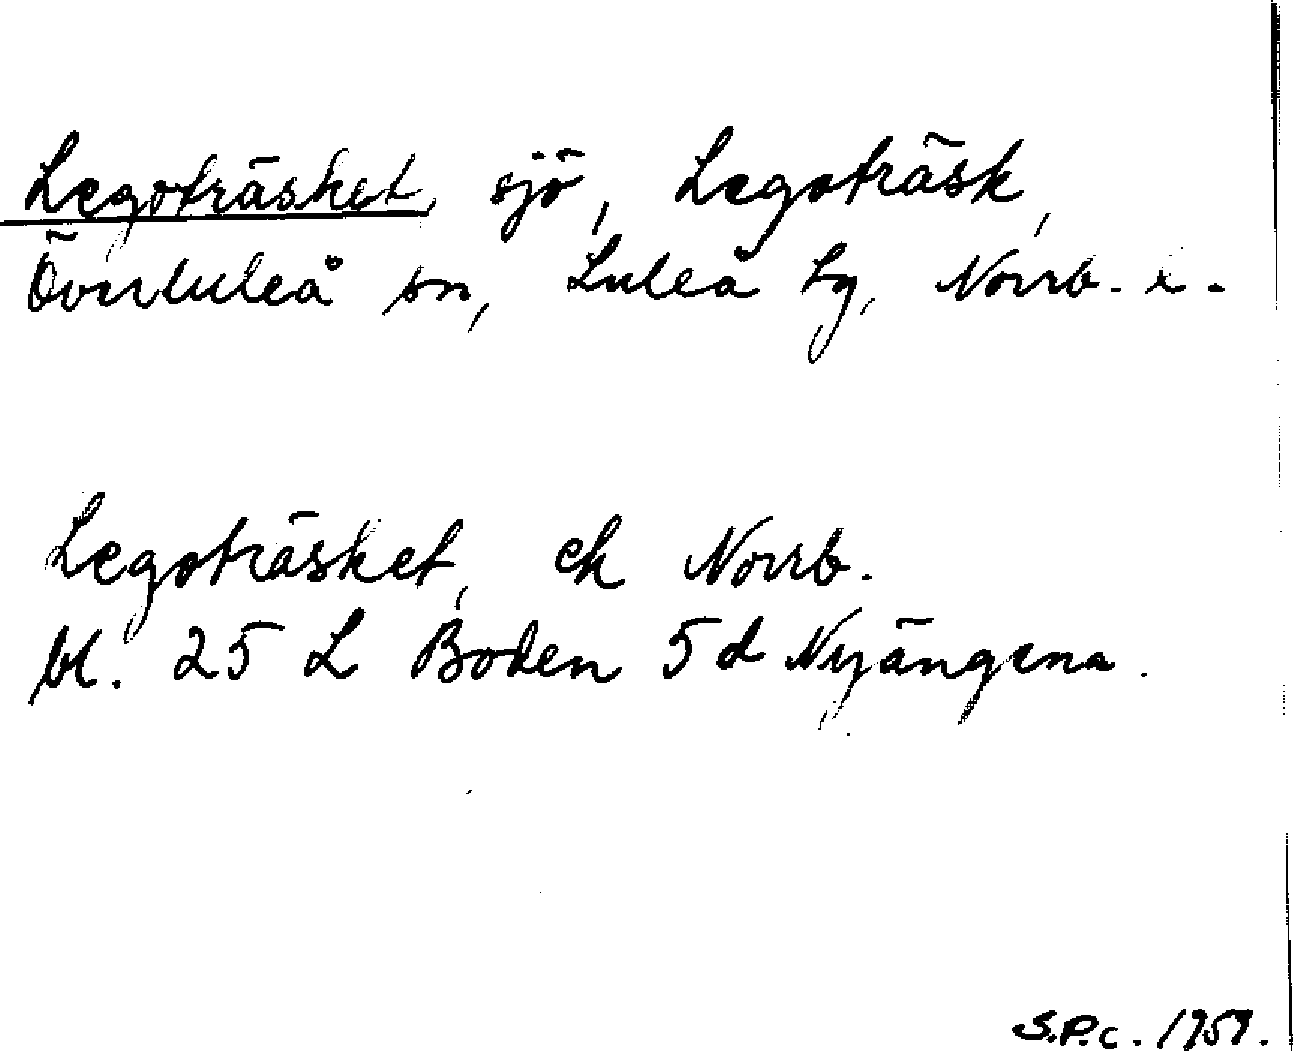 Legoträsket, sjö, Legoträsk,
Överluleå sn, Luleå tg, Norrb. l.
Legoträsket, ek Norrb.
bl. 25 L Boden 5d Nyängena.
S.P.c. 1959.